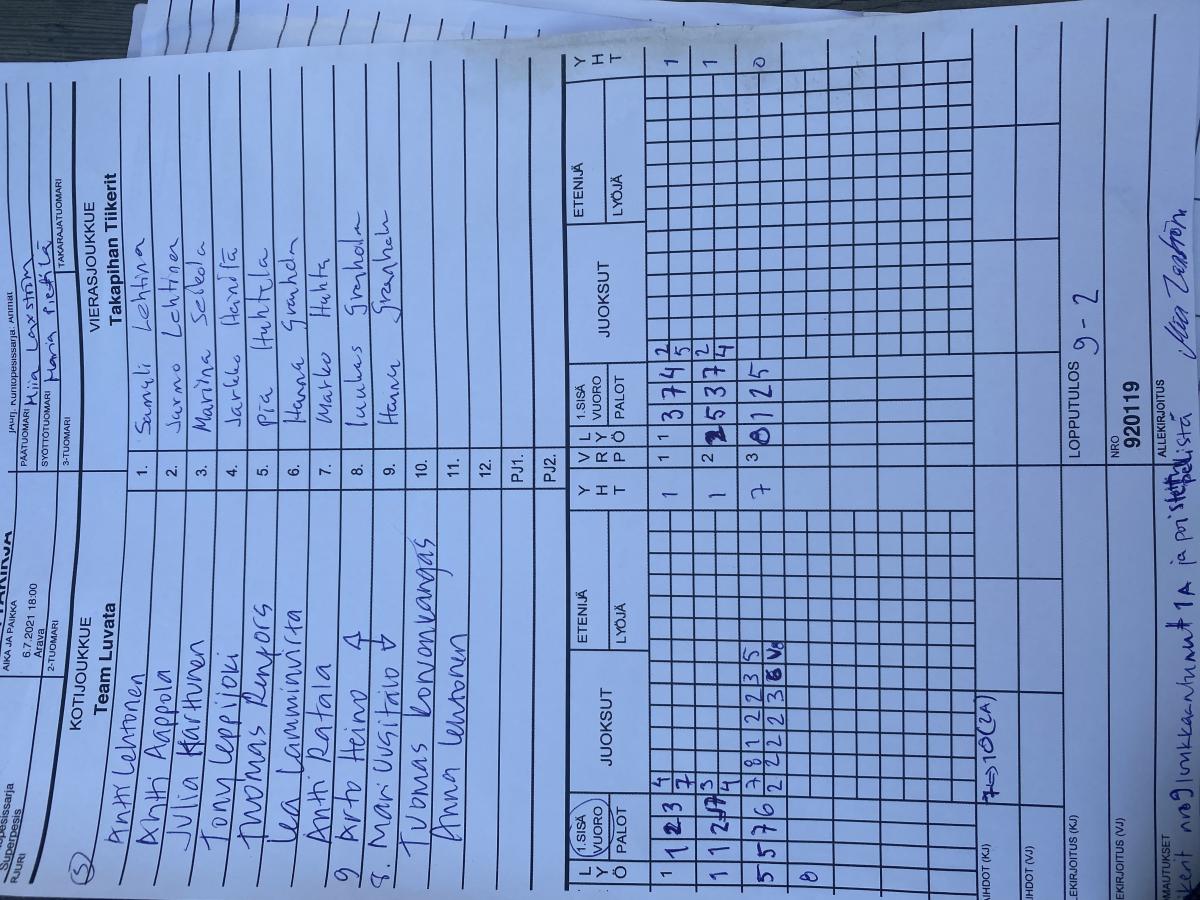 TAKIRJA
opesissarja
Superpesis
RJURI
AIKA JA PAIKKA
6.7.2021 18:00
Arava
2-TUOMARI
PÄÄTUOMARI Miia Laxström
SYÖTTÖTUOMARI Maria Pietilä
3-TUOMARI
TAKARAJATUOMARI
5 KOTIJOUKKUE
Team Luvata
VIERASJOUKKUE
Takapihan Tiikerit
Antti Lehtonen 1. Samuli Lehtinen
Antti Aappola 2. Jarmo Lehtinen
Julia Karhunen 3. Mariina Seikola
Tony Leppijoki 4. Jarkko
Tuomas Renfors 5. Pia Huhtela
Lea Lamminvirta 6. Hanna Granhola
Antti Ratala 7. Marko Huhta
9 Arto Heimo ↑ 8. Luukas Granhola
8. Mari Uusitalo ↓ 9. Hannu
Tuomas 10.
Anna Lehtonen 11.
12.
PJ1.
PJ2.
L Y Ö 1.SISÄ VUORO PALOT JUOKSUT ETENIJÄ LYÖJÄ Y H T V R P L Y Ö 1.SISÄ VUORO PALOT JUOKSUT ETENIJÄ LYÖJÄ Y H T
1 1 2 3 4 1 1 1 3 7 4 2 1
7 5
1 1 2 3 1 2 2 5 3 7 2 1
4 4
5 5 7 6 7 8 1 2 2 3 5 7 3 8 1 2 5 0
2 2 2 2 3 6 V8
8
IHDOT (KJ) 7=>10(2A)
IHDOT (VJ)
LEKIRJOITUS (KJ)
LOPPUTULOS
9 - 2
EKIRJOITUS (VJ)
NRO
920119
OMAUTUKSET
ALLEKIRJOITUS
nro 9 loukkaantunut 1A ja poistettu pelistä